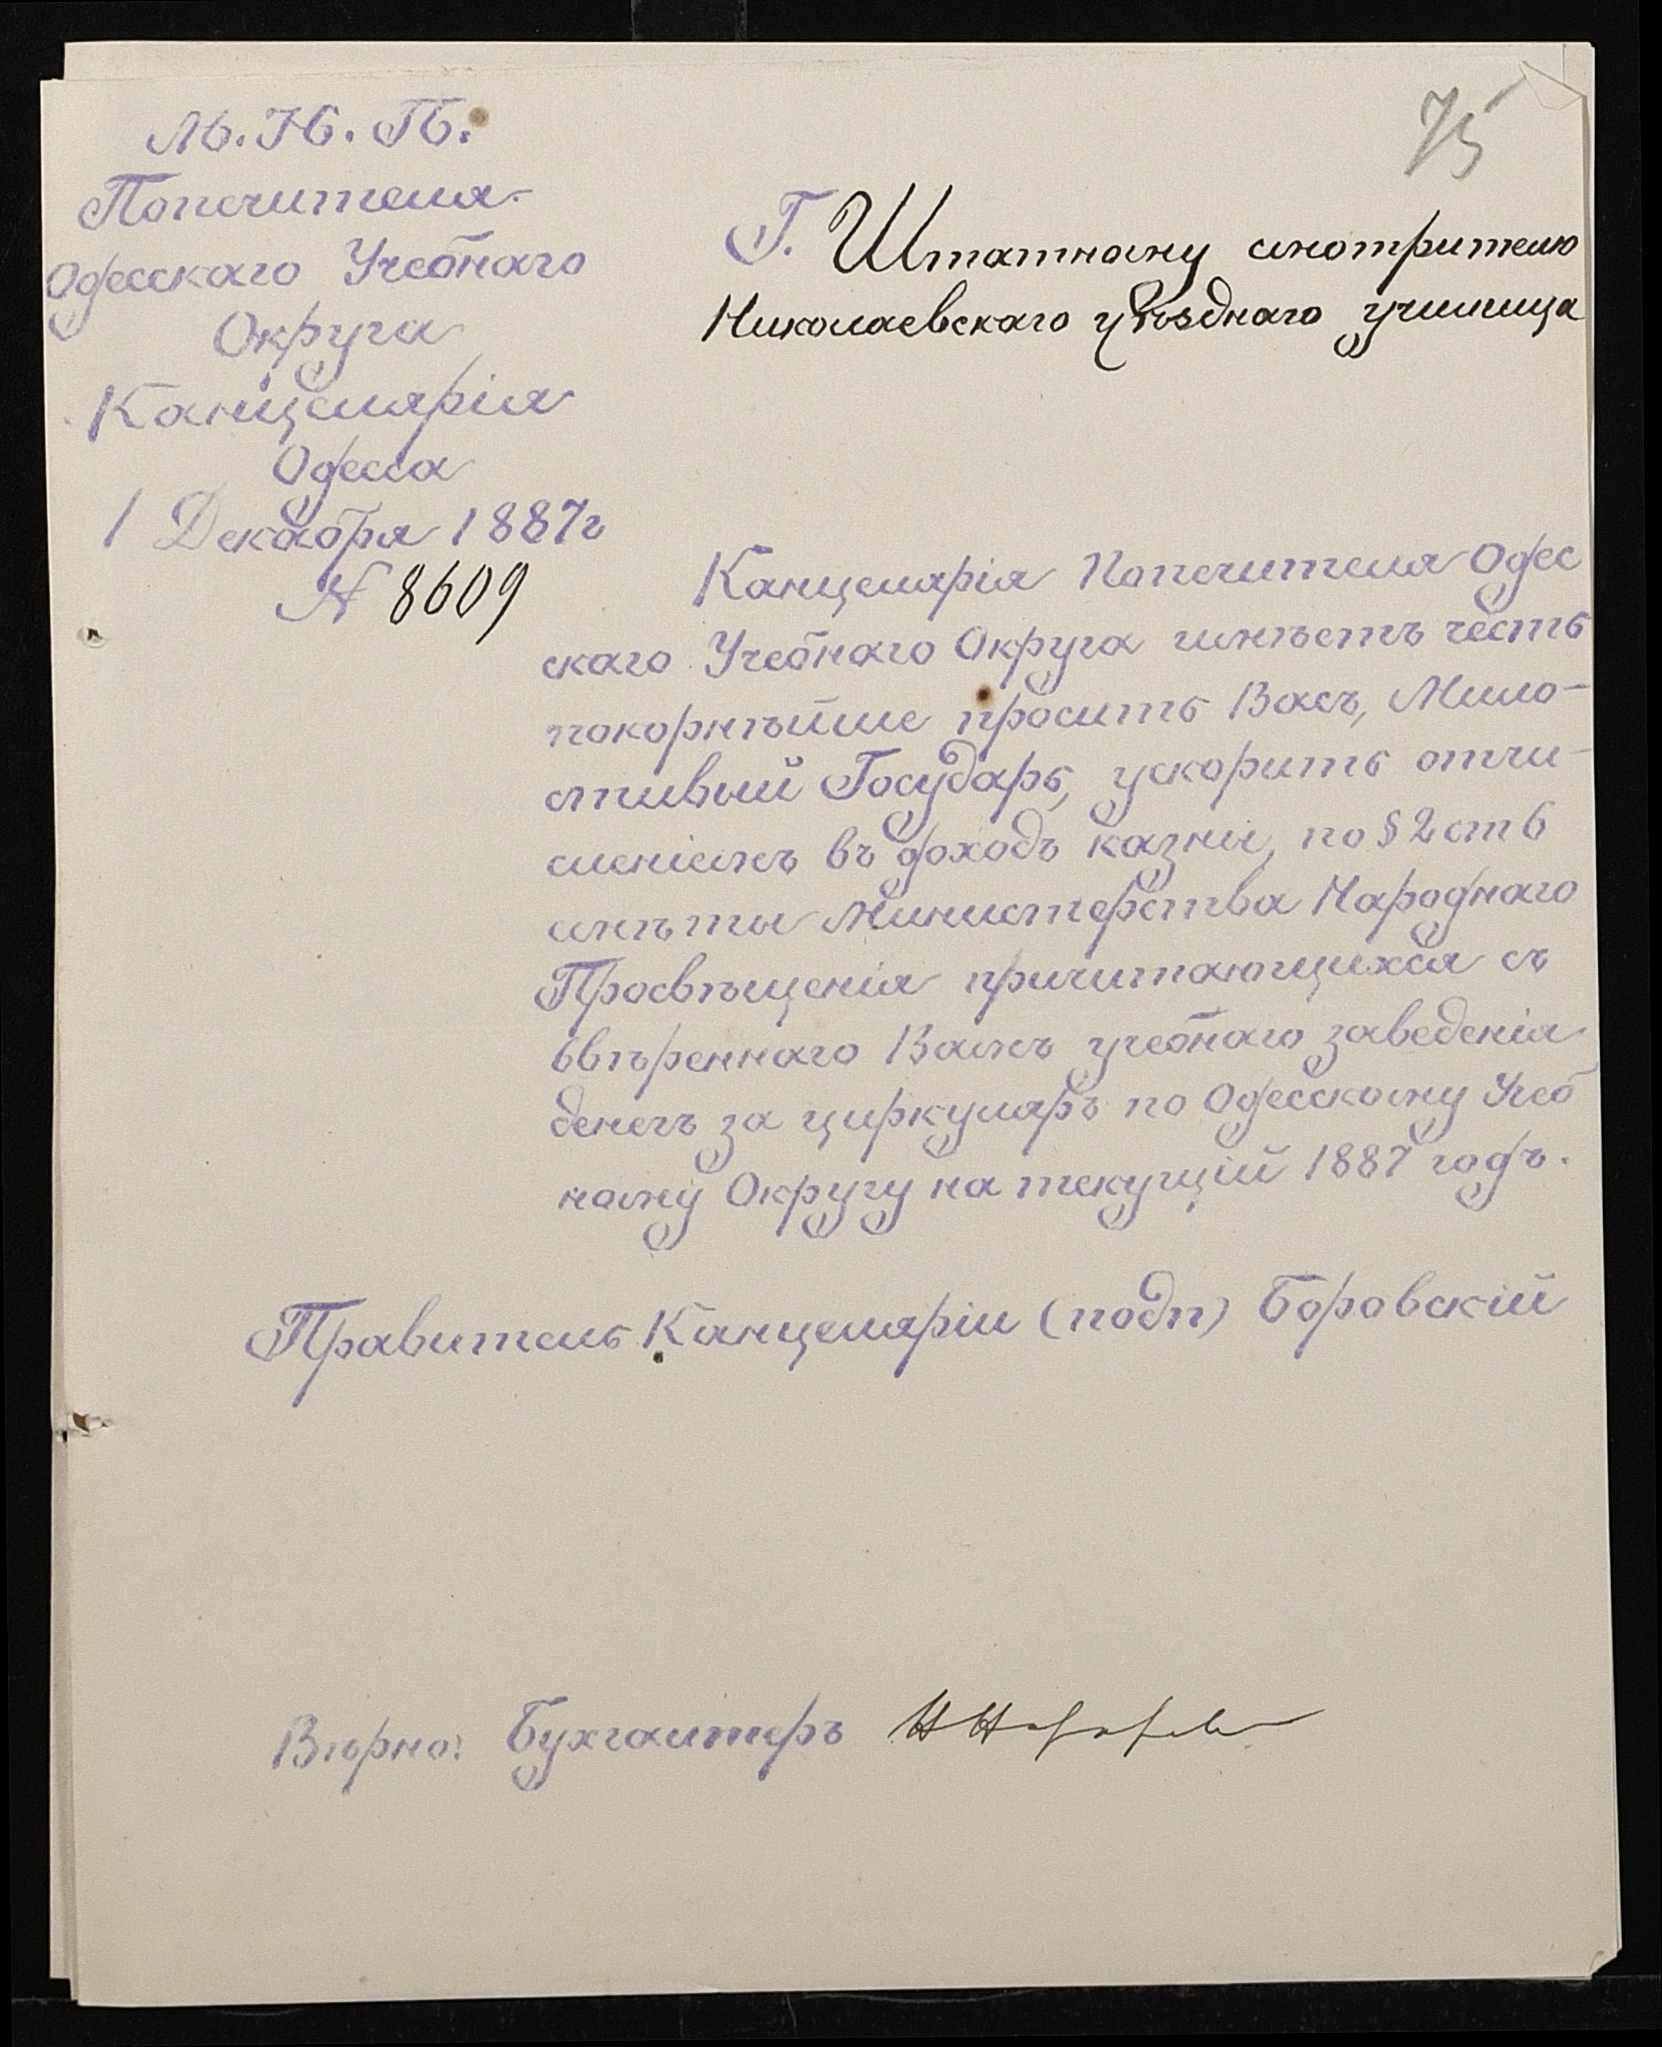 М. Н. П.
Попечителя
Одесскаго Учебнаго
Округа
Канцелярія
Одесса
1 Декабря 1887 г
№ 8609
75
Г. Штатному смотрителю
Николаевскаго уѣзднаго училища
Канцелярія Попечителя Одес
скаго Учебнаго Округа имѣетъ честь
покорнѣйше просить Васъ, Мило-
стивый Государь, ускорить отчи-
сленіемъ въ доходъ казны, по § 2 ст 6
смѣты Министерства Народнаго
Просвѣщенія причитающихся съ
ввѣреннаго Вамъ учебнаго заведенія
денегъ за циркуляръ по Одесскому Учеб
ному Округу на текущій 1887 годъ.
Правитель Канцеляріи (подп) Боровскій
Вѣрно: Бухгалтеръ